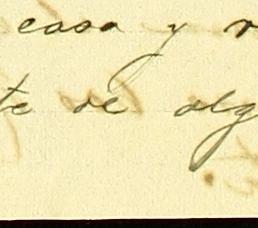 casa y
de alg